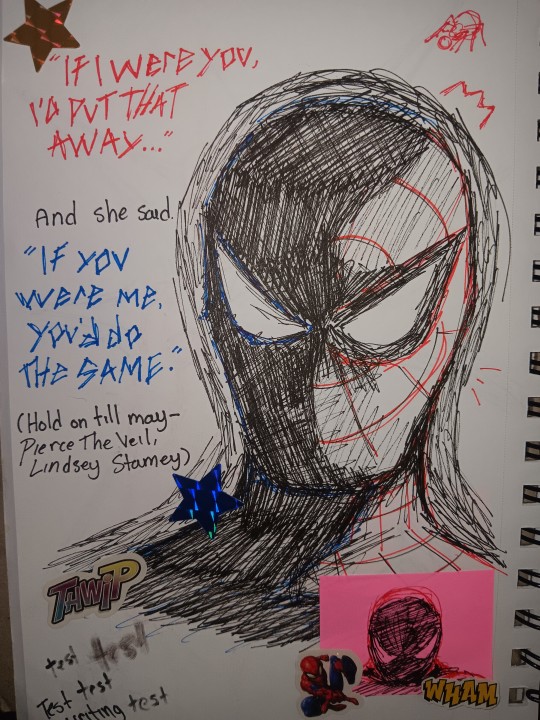 "IF I WERE YOU,
I'D PUT THAT
AWAY..."
And she said.
"IF YOU
WERE ME,
YOU'd DO
THE SAME."
(Hold on till may-
Pierce The Veil,
Lindsey Stamey)
THWIP
test test
Test test
writing test
WHAM